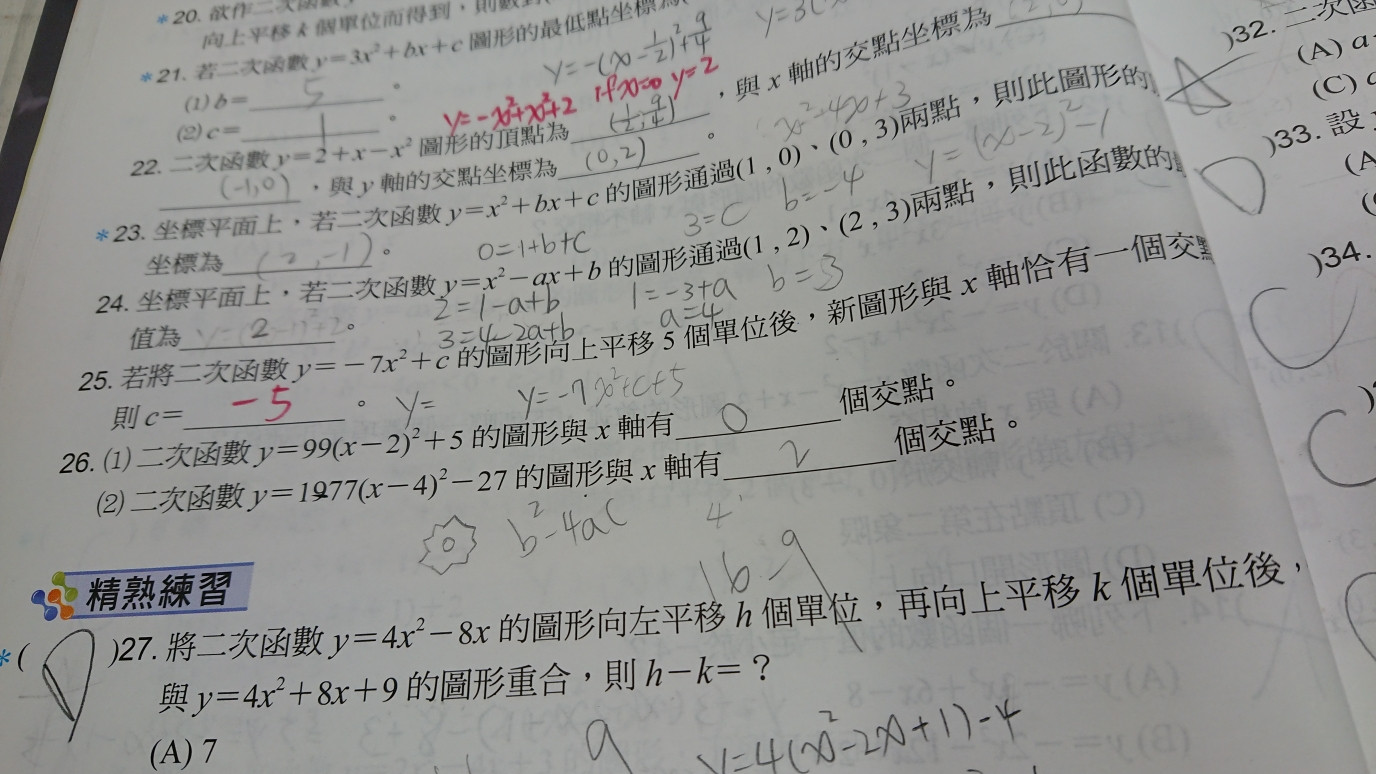 *20. 欲作二次函數
向上平移 k 個單位而得到，則數對
*21. 若二次函數 y=3x²+bx+c 圖形的最低點坐標為
(1) b= 5 。
(2) c= 1 。
y=-(x-1/2)²+9/4
y=-x²+x²+2 if x=0 y=2
22. 二次函數 y=2+x-x² 圖形的頂點為 (1/2, 9/4) ，與 x 軸的交點坐標為 (2,0)
(-1,0) ，與 y 軸的交點坐標為 (0,2) 。
x²-4x+3
*23. 坐標平面上，若二次函數 y=x²+bx+c 的圖形通過(1 , 0)、(0 , 3)兩點，則此圖形的
坐標為 (2,-1) 。 0=1+b+c 3=c b=-4 y=(x-2)²-1
24. 坐標平面上，若二次函數 y=x²-ax+b 的圖形通過(1 , 2)、(2 , 3)兩點，則此函數的
值為 2 。 2=1-a+b 1=-3+a b=3
3=4-2a+b a=4
25. 若將二次函數 y=-7x²+c 的圖形向上平移 5 個單位後，新圖形與 x 軸恰有一個交點
則 c= -5 。 y= y=-7x²+c+5
26. (1) 二次函數 y=99(x-2)²+5 的圖形與 x 軸有 0 個交點。
(2) 二次函數 y=1977(x-4)²-27 的圖形與 x 軸有 2 個交點。
b²-4ac 4
精熟練習
*( )27. 將二次函數 y=4x²-8x 的圖形向左平移 h 個單位，再向上平移 k 個單位後，
與 y=4x²+8x+9 的圖形重合，則 h-k=？
(A) 7
9 y=4(x²-2x+1)-4
)32. 二次函
(A) a
(C)
)33. 設
(A
)34.